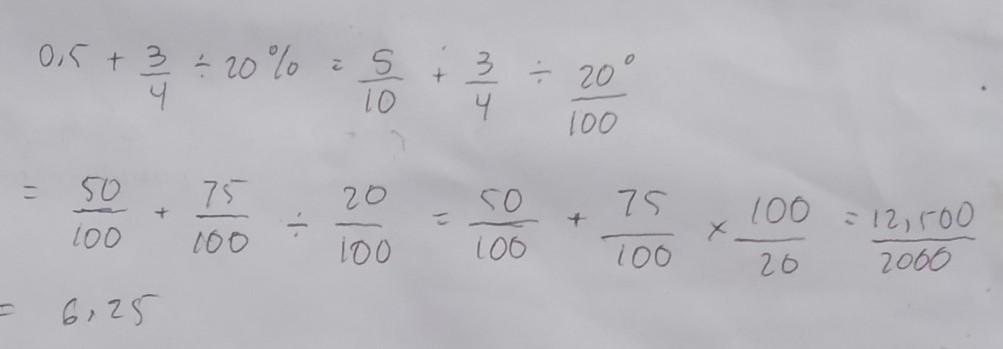 0,5 + 3/4 ÷ 20% = 5/10 + 3/4 ÷ 20°/100
= 50/100 + 75/100 ÷ 20/100 = 50/100 + 75/100 × 100/20 = 12,500/2000
= 6,25